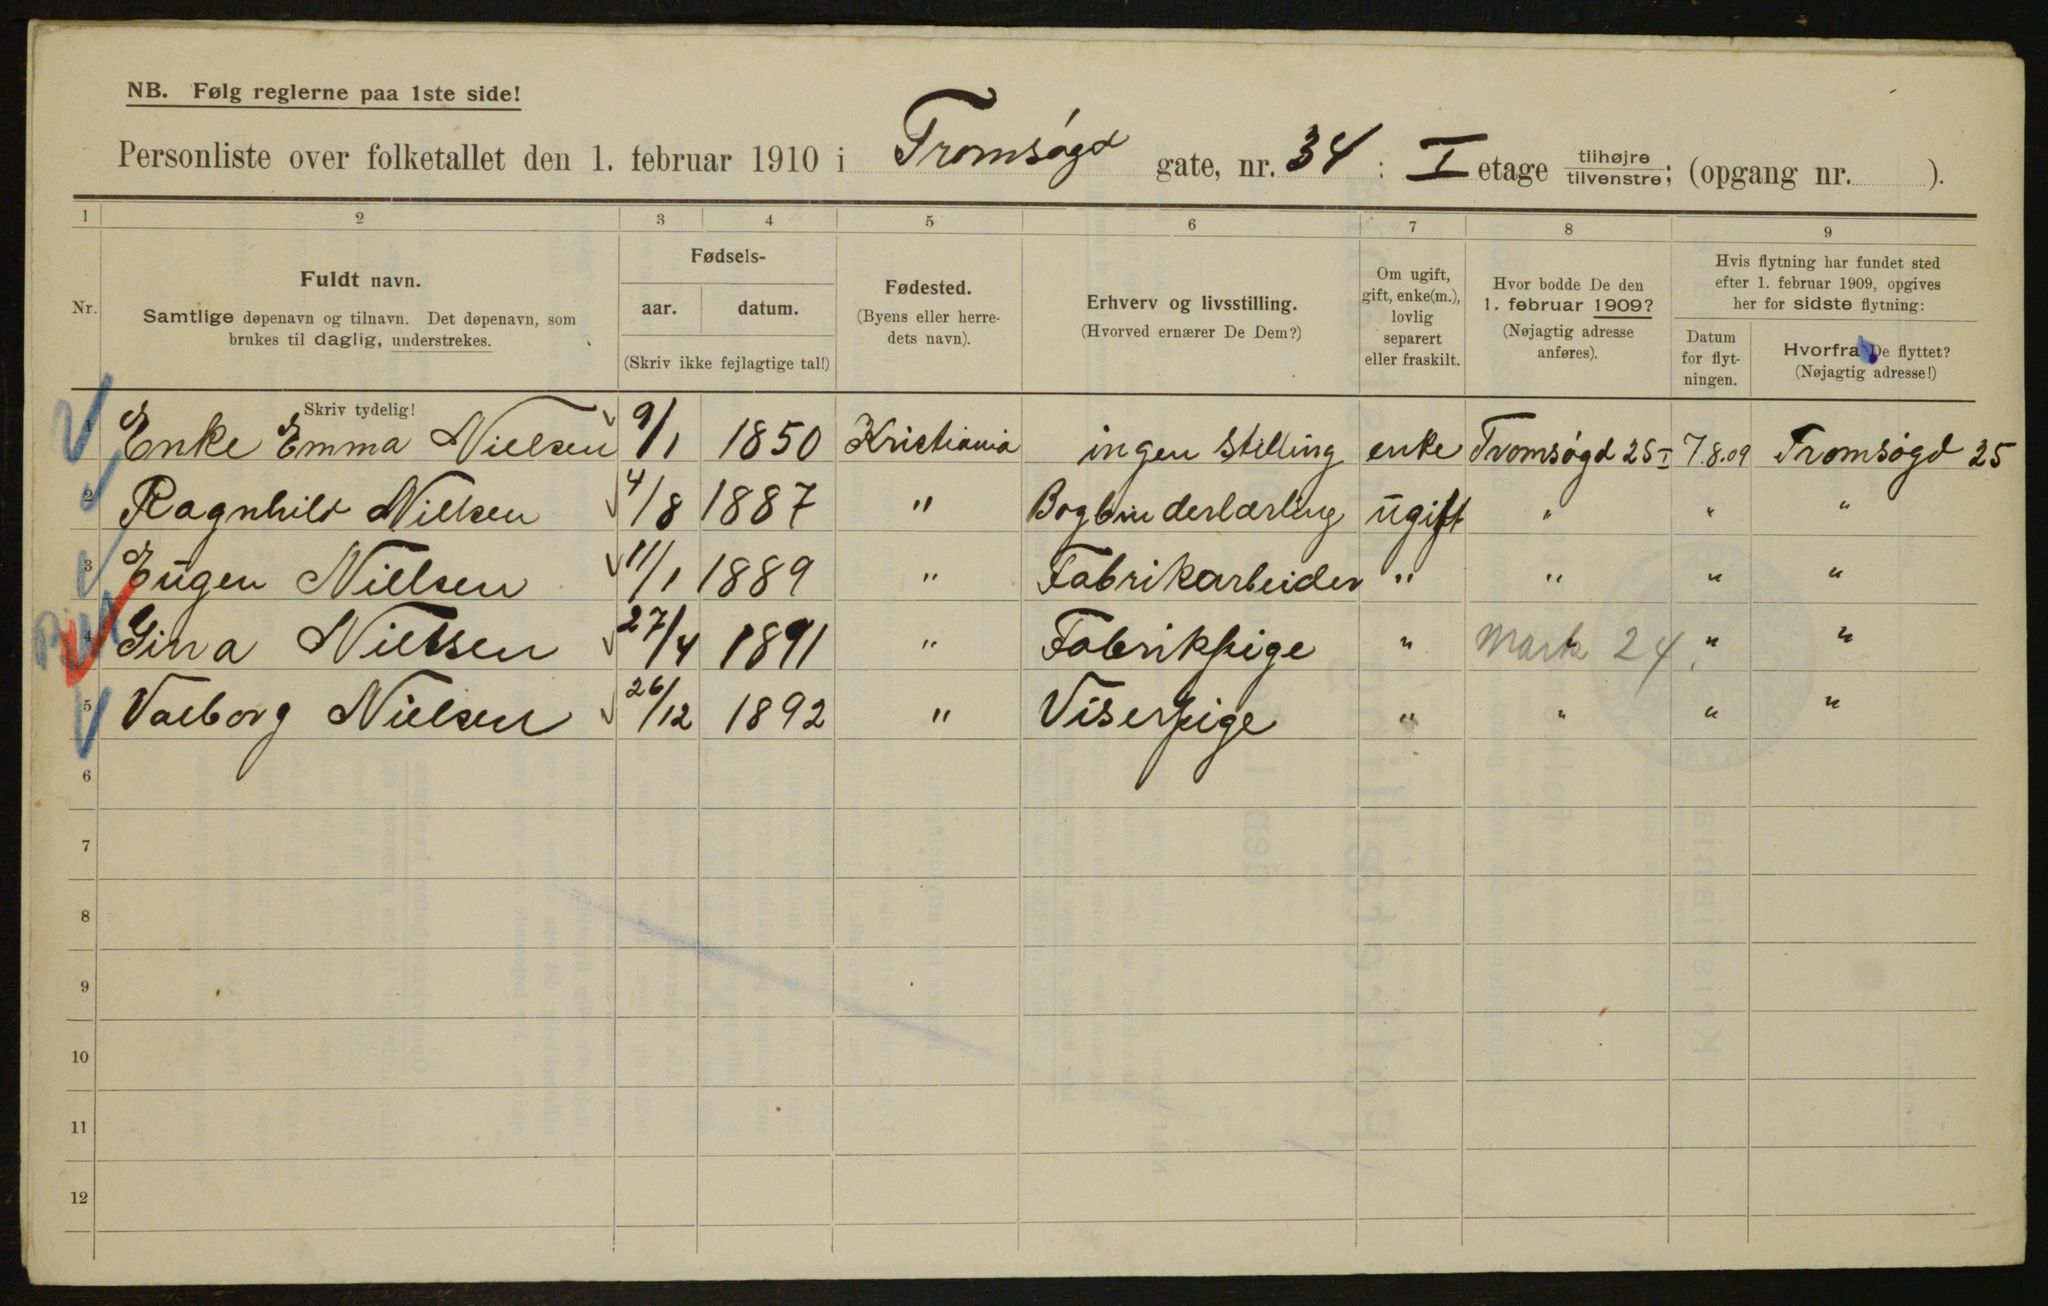 NB. Følg reglerne paa 1ste side!
Personliste over folketallet den 1. februar 1910 i Tromsøgd gate, nr. 34 : I etage tilhøjre tilvenstre; (opgang nr. ).
1 2 3 4 5 6 7 8 9
Nr.
Fuldt navn.
Samtlige døpenavn og tilnavn. Det døpenavn, som
brukes til daglig, understrekes.
Skriv tydelig!
Fødsels-
aar. datum.
(Skriv ikke fejlagtige tal!)
Fødested.
(Byens eller herre-
dets navn).
Erhverv og livsstilling.
(Hvorved ernærer De Dem?)
Om ugift,
gift, enke(m.),
lovlig
separert
eller fraskilt.
Hvor bodde De den
1. februar 1909?
(Nøjagtig adresse
anføres).
Hvis flytning har fundet sted
efter 1. februar 1909, opgives
her for sidste flytning:
Datum
for flyt-
ningen.
Hvorfra De flyttet?
(Nøjagtig adresse!)
1 Enke Emma Nielsen 9/1 1850 Kristiania ingen Stilling enke Tromsøgd 25 I 7.8.09 Tromsøgd 25
2 Ragnhild Nielsen 4/8 1887 " Bogbinderlærling ugift " " "
3 Eugen Nielsen 11/1 1889 " Fabrikarbeider " " " "
4 Gina Nielsen 27/4 1891 " Fabrikpige " Mark 24 " "
5 Valborg Nielsen 26/12 1892 " Viserpige " " " "
6
7
8
9
10
11
12